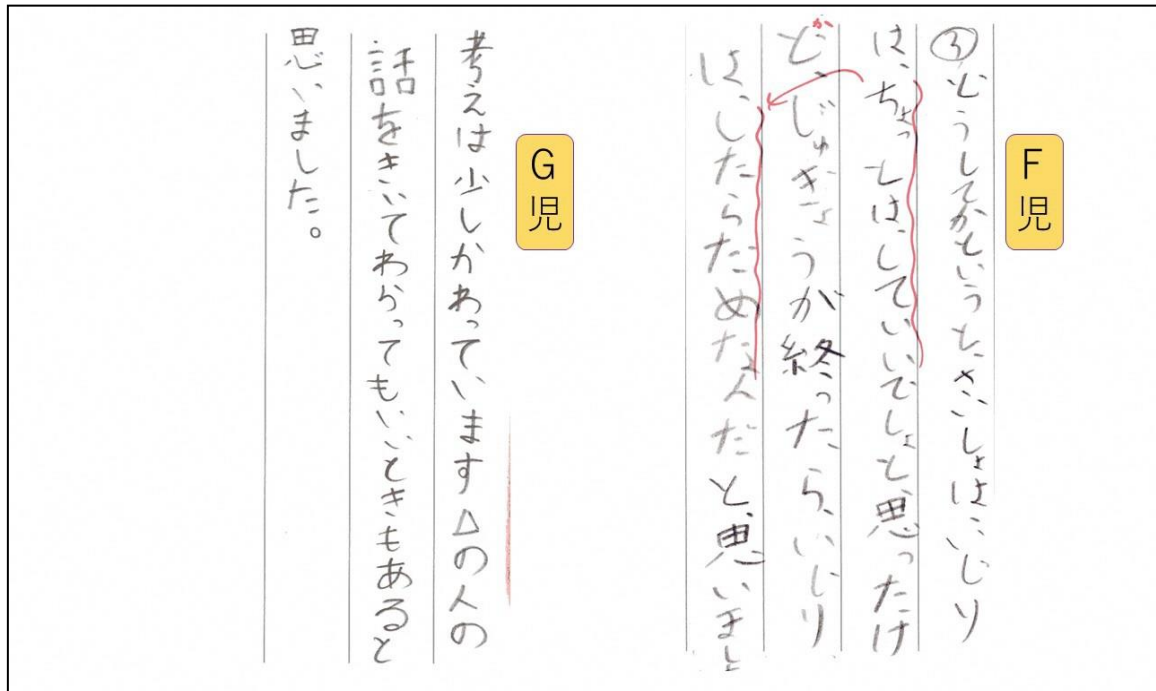 F児
③どうしてかというと、さいしょは、いじり
は、ちょっとは、していいでしょと、思ったけ
ど、じゅぎょうが終ったら、いじり
は、したらだめなんだと、思いまし
G児
考えは少しかわっています△の人の
話をきいてわかってもいいときもあると
思いました。